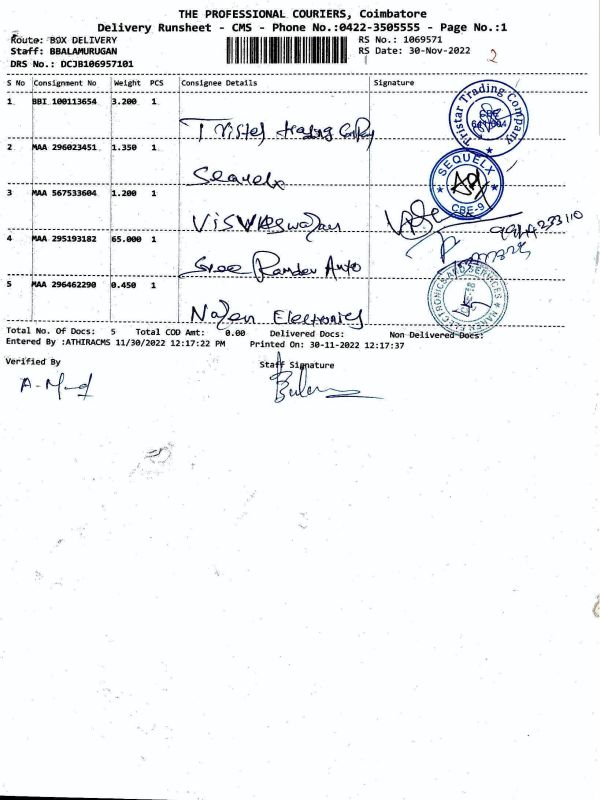 THE PROFESSIONAL COURIERS, Coimbatore
Delivery Runsheet - CMS - Phone No.:0422-3505555 - Page No.:1
Route: BOX DELIVERY RS No.: 1069571
Staff: BBALAMURUGAN RS Date: 30-Nov-2022 2
DRS No.: DCJB106957101
S No Consignment No Weight PCS Consignee Details Signature
1 BBI 100113654 3.200 1
Tristar Trading Company
Tristar trading
2 MAA 296023451 1.350 1
SEQUELX
CBE-9
Sequelx
3 MAA 567533604 1.200 1
Viswaswaran
4 MAA 295193182 65.000 1
Sree Ramdev Auto
5 MAA 296462290 0.450 1
NAREN ELECTRONICS AND SERVICES
Naren Electronics
Total No. Of Docs: 5 Total COD Amt: 0.00 Delivered Docs: Non-Delivered Docs:
Entered By :ATHIRACMS 11/30/2022 12:17:22 PM Printed On: 30-11-2022 12:17:37
Verified By Staff Signature